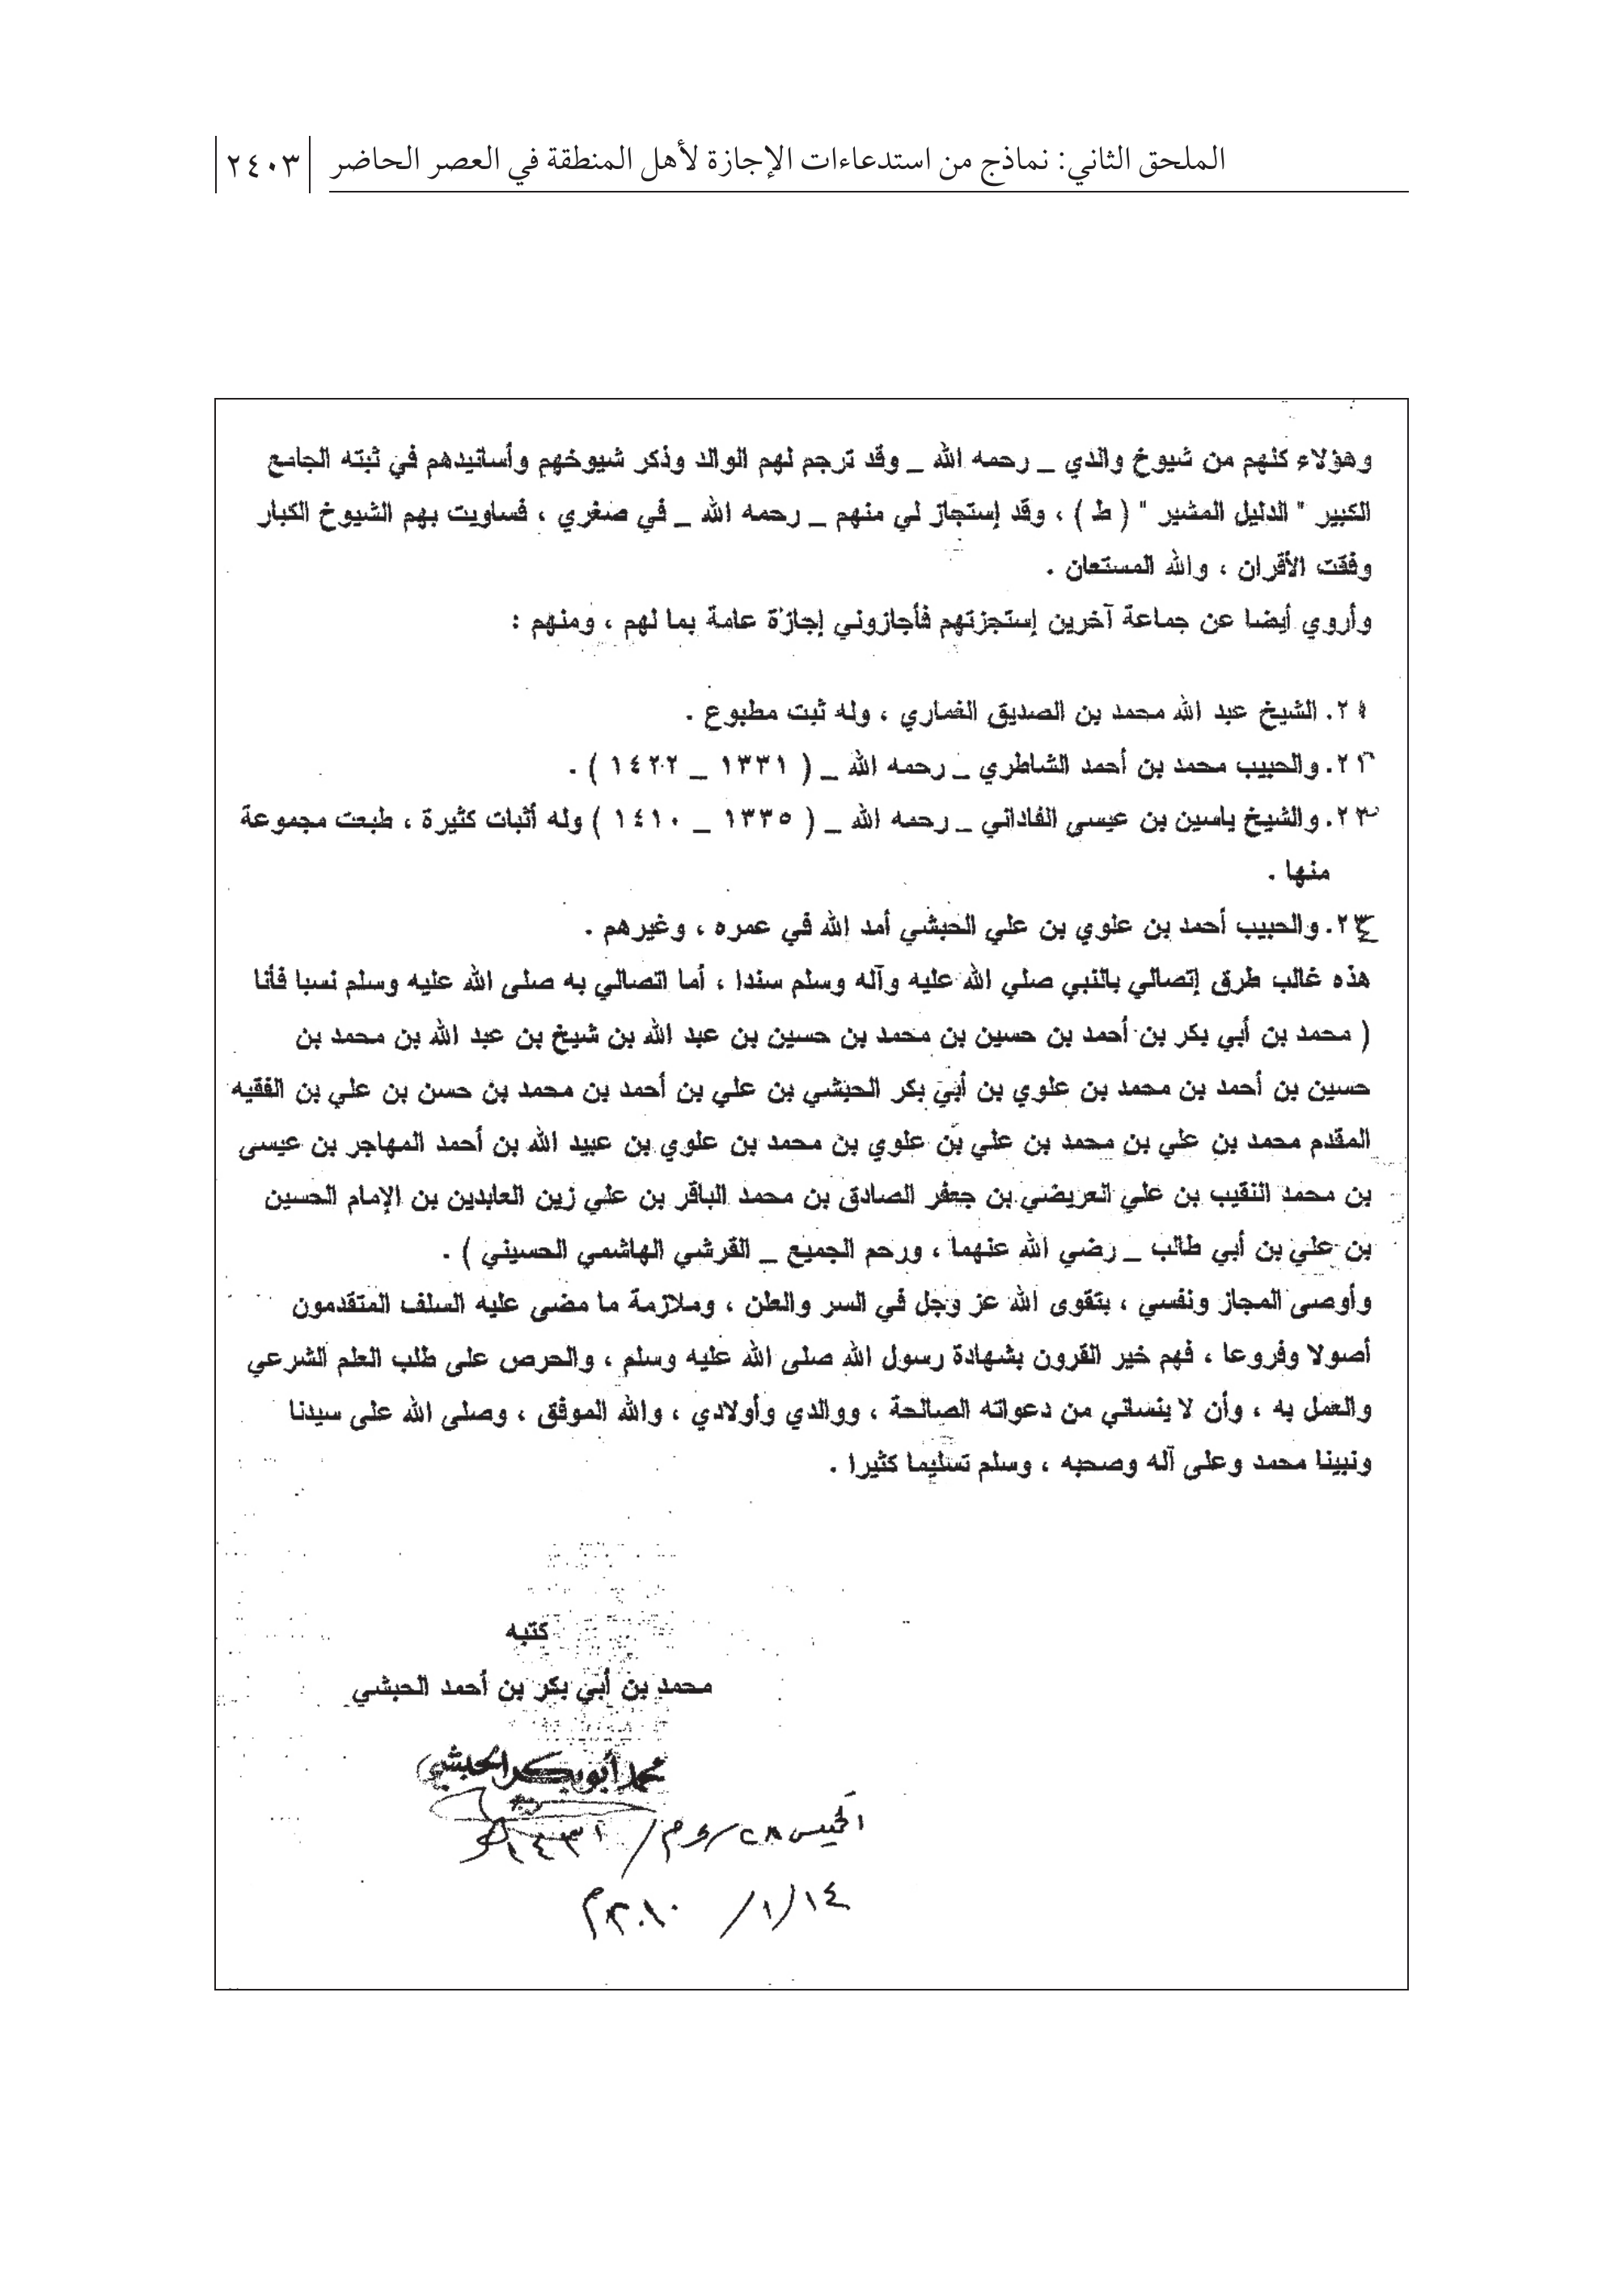 الملحق الثاني: نماذج من استدعاءات الإجازة لأهل المنطقة في العصر الحاضر ٢٤٠٣
وهؤلاء كلهم من شيوخ والدي _ رحمه الله _ وقد ترجم لهم الوالد وذكر شيوخهم وأسانيدهم في ثبته الجامع
الكبير " الدليل المشير " ( ط ) ، وقد إستجاز لي منهم _ رحمه الله _ في صغري ، فساويت بهم الشيوخ الكبار
وفقت الأقران ، والله المستعان .
وأروي أيضا عن جماعة آخرين إستجزتهم فأجازوني إجازة عامة بما لهم ، ومنهم :
٢١. الشيخ عبد الله محمد بن الصديق الغماري ، وله ثبت مطبوع .
٢٢. والحبيب محمد بن أحمد الشاطري _ رحمه الله _ ( ١٣٣١ _ ١٤٢٢ ) .
٢٣. والشيخ ياسين بن عيسى الفاداني _ رحمه الله _ ( ١٣٣٥ _ ١٤١٠ ) وله أثبات كثيرة ، طبعت مجموعة
منها .
٢٤. والحبيب أحمد بن علوي بن علي الحبشي أمد الله في عمره ، وغيرهم .
هذه غالب طرق إتصالي بالنبي صلي الله عليه وآله وسلم سندا ، أما اتصالي به صلى الله عليه وسلم نسبا فأنا
( محمد بن أبي بكر بن أحمد بن حسين بن محمد بن حسين بن عبد الله بن شيخ بن عبد الله بن محمد بن
حسين بن أحمد بن محمد بن علوي بن أبي بكر الحبشي بن علي بن أحمد بن محمد بن حسن بن علي بن الفقيه
المقدم محمد بن علي بن محمد بن علي بن علوي بن محمد بن علوي بن عبيد الله بن أحمد المهاجر بن عيسى
بن محمد النقيب بن علي العريضي بن جعفر الصادق بن محمد الباقر بن علي زين العابدين بن الإمام الحسين
بن علي بن أبي طالب _ رضي الله عنهما ، ورحم الجميع _ القرشي الهاشمي الحسيني ) .
وأوصى المجاز ونفسي ، بتقوى الله عز وجل في السر والعلن ، وملازمة ما مضى عليه السلف المتقدمون
أصولا وفروعا ، فهم خير القرون بشهادة رسول الله صلى الله عليه وسلم ، والحرص على طلب العلم الشرعي
والعمل به ، وأن لا ينساني من دعواته الصالحة ، ووالدي وأولادي ، والله الموفق ، وصلى الله على سيدنا
ونبينا محمد وعلى آله وصحبه ، وسلم تسليما كثيرا .
كتبه
محمد بن أبي بكر بن أحمد الحبشي
محمد أبو بكر الحبشي
الخميس ٢٨/محرم/١٤٣١هـ
١٤/١/٢٠١٠م